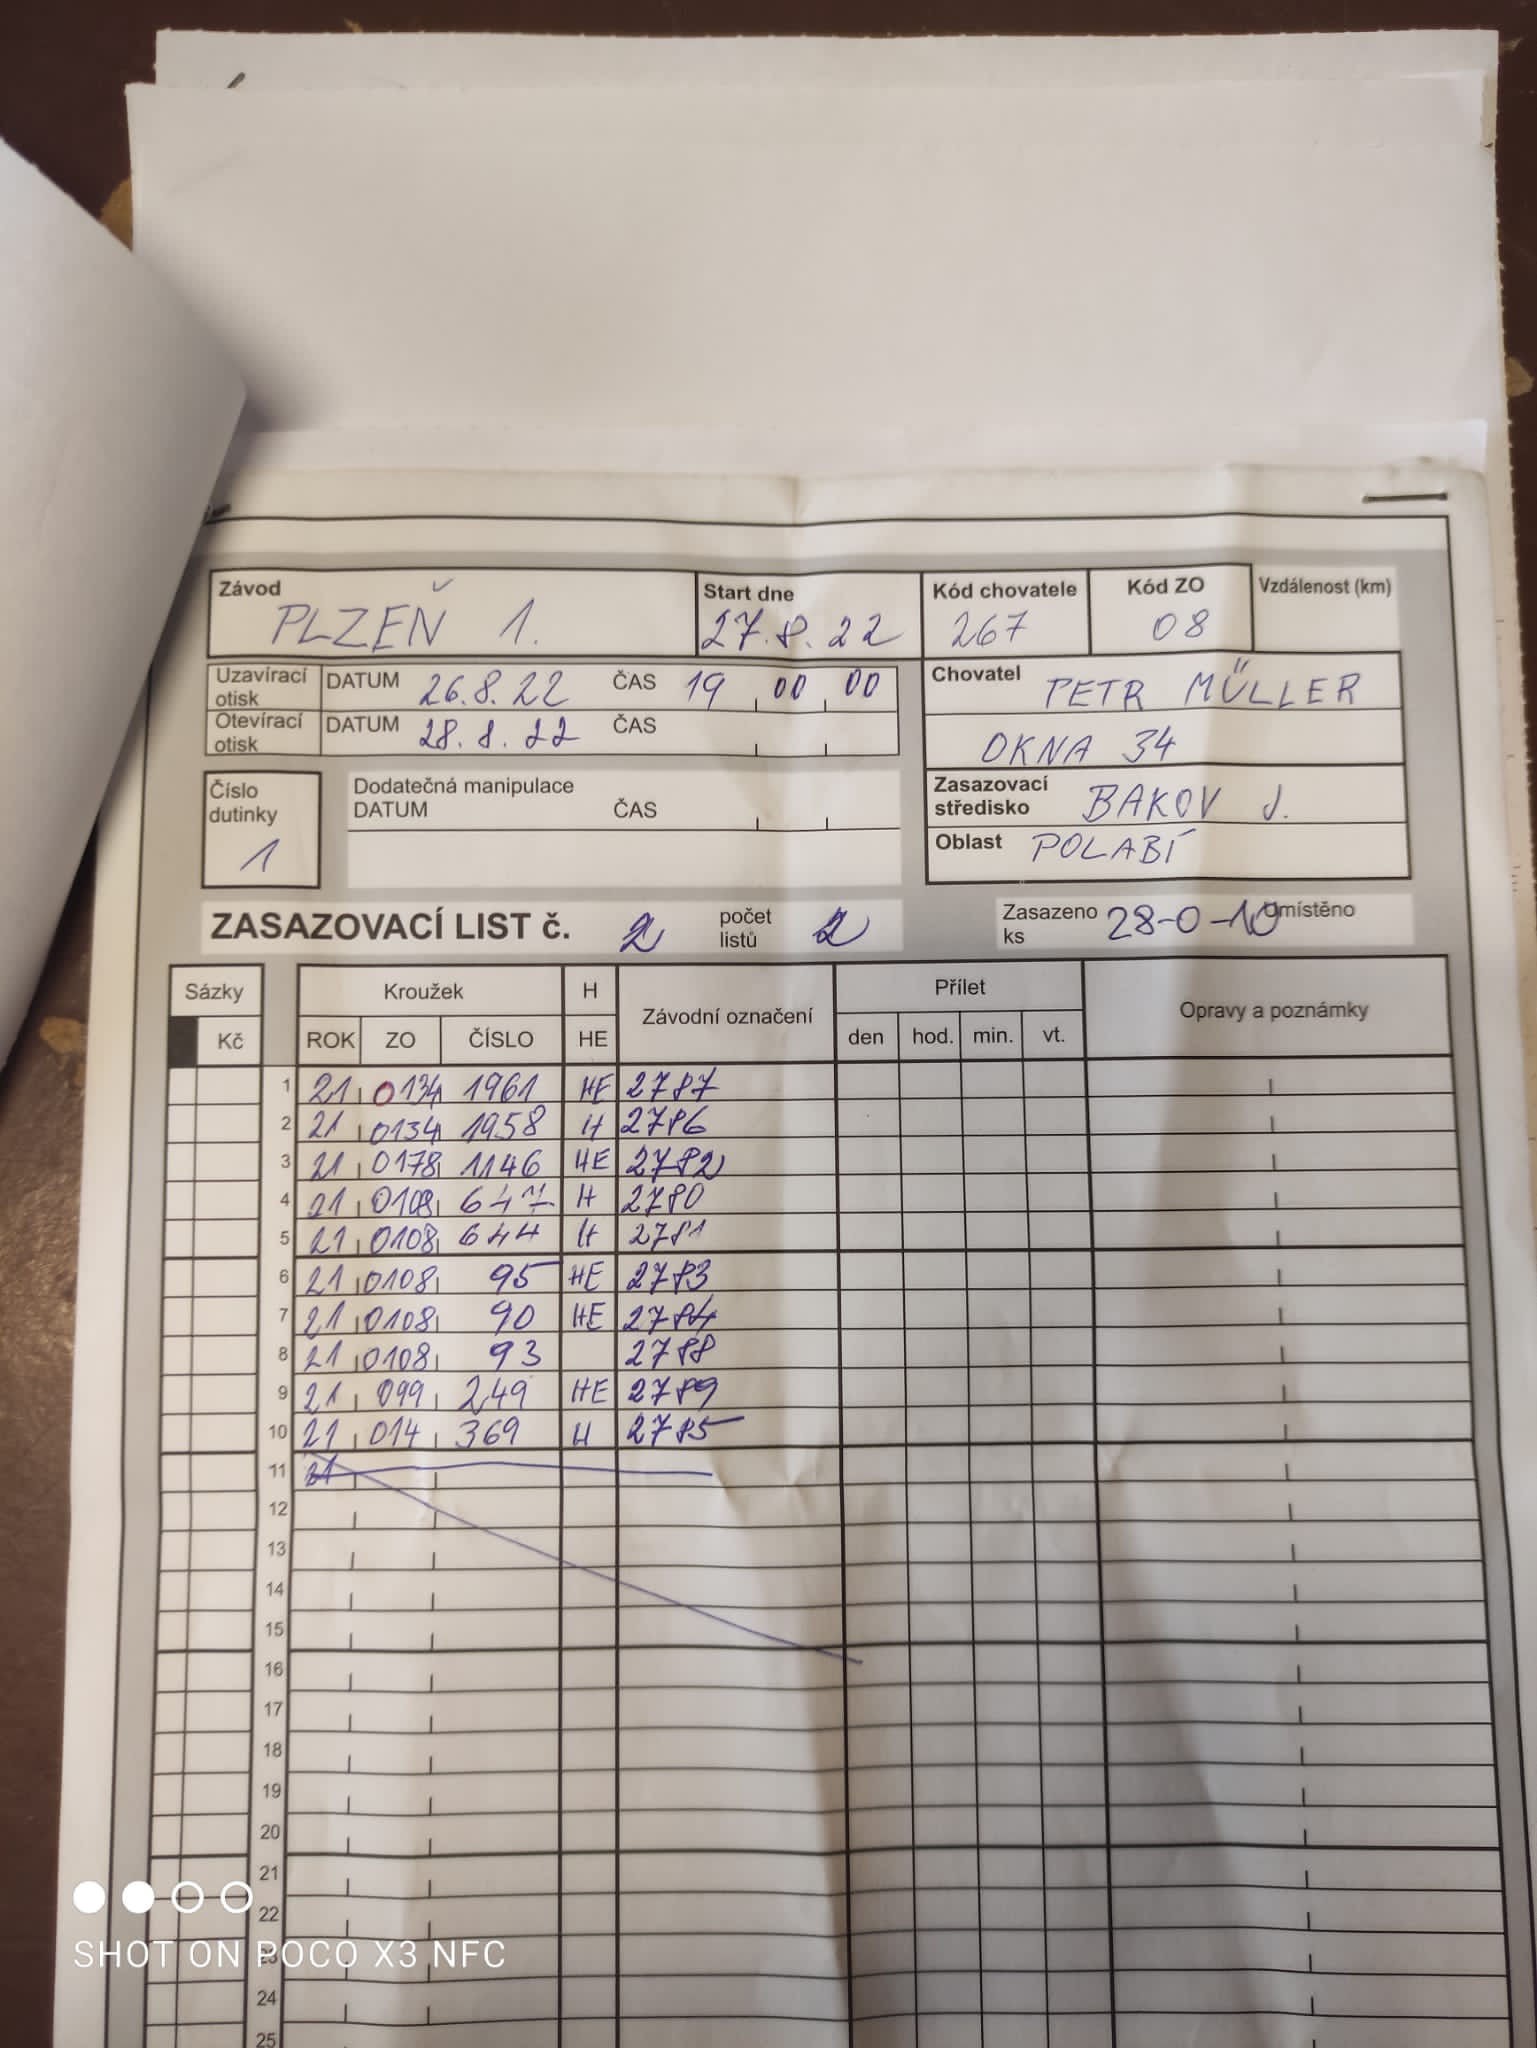 Závod Start dne Kód chovatele Kód ZO Vzdálenost (km)
PLZEŇ 1. 27.8.22 267 08
Uzavírací otisk DATUM 26.8.22 ČAS 19 00 00
Otevírací otisk DATUM 28.8.22 ČAS
Chovatel PETR MÜLLER
OKNA 34
Číslo dutinky 1
Dodatečná manipulace
DATUM ČAS
Zasazovací středisko BAKOV J.
Oblast POLABÍ
ZASAZOVACÍ LIST č. 2 počet listů 2 Zasazeno ks 28-0-10 Umístěno
Sázky Kroužek H Závodní označení Přílet Opravy a poznámky
Kč ROK ZO ČÍSLO HE den hod. min. vt.
1 21 0134 1961 HE 2787
2 21 0134 1958 H 2786
3 21 0178 1146 HE 2782
4 21 0108 647 H 2780
5 21 0108 644 H 2781
6 21 0108 95 HE 2783
7 21 0108 90 HE 2784
8 21 0108 93 2788
9 21 099 249 HE 2789
10 21 014 369 H 2785
11 21
12
13
14
15
16
17
18
19
20
21
22
23
24
25
SHOT ON POCO X3 NFC